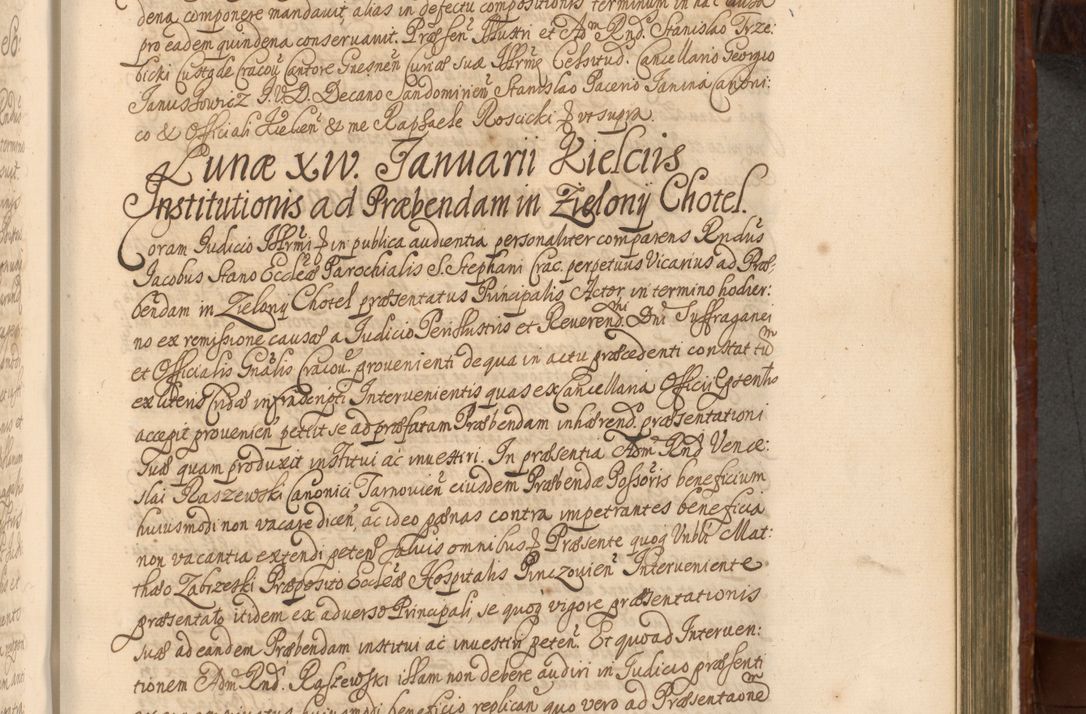 dena componere mandavit alias in defectu compositionis terminum in hac causa
pro eadem quindena conservavit. Præsen. Illustri et Adm. Rnd. Stanislao Trze:
bicki Custode Cracov. Cantore Gnesnen. Curiæ suæ Illrmæ Celsitud. Cancellario Georgio
Januszowicz J.U.D. Decano Sandomirien. Stanislao Pacerio Janina Canoni:
co & Officiali Kielien. & me Raphaele Roscicki ut supra.
Lunæ XIV. Januarii Kielciis
Institutionis ad Præbendam in Zielony Chotel.
Coram Judicio Illrmi in publica audientia personaliter comparens Rndus
Jacobus Stano Eccleæ Parochialis S. Stephani Crac. perpetuus Vicarius ad Præ:
bendam in Zielony Chotel præsentatus Principalis Actor in termino hodier:
no ex remissione causæ a Judicio Perillustris et Reverend.mi Dni Suffraganei
et Officialis Gnalis Cracov. provenienti de qua in actu præcedenti constat tum
ex literis Cridæ infrascripti Intervenientis quas ex Cancellaria Officii Episcopalis
accepit provenien. petiit se ad præfatam Præbendam inhærend. præsentationi
suæ quam produxit institui ac investiri. In præsentia Adm. Rnd Vence:
slai Raszewski Canonici Tarnovien. eiusdem Præbendæ Possoris beneficium
huiusmodi non vacare dicen. ac ideo pænas contra impetrantes beneficia
non vacantia extendi peten. salvis omnibus. Præsente quoq Vnbli Mat:
thæo Zabrzeski Præposito Eccleæ Hospitalis Pinczovien. Interveniente
præsentato itidem ex adverso Principali, se quoq vigore præsentationis
suæ ad eandem Præbendam institui ac investiri peten. Et quoad Interven:
tionem Adm. Rnd. Raszewski illam non debere audiri in Judicio præsenti
huiusmodi beneficio replican. quo vero ad Præsentaonem